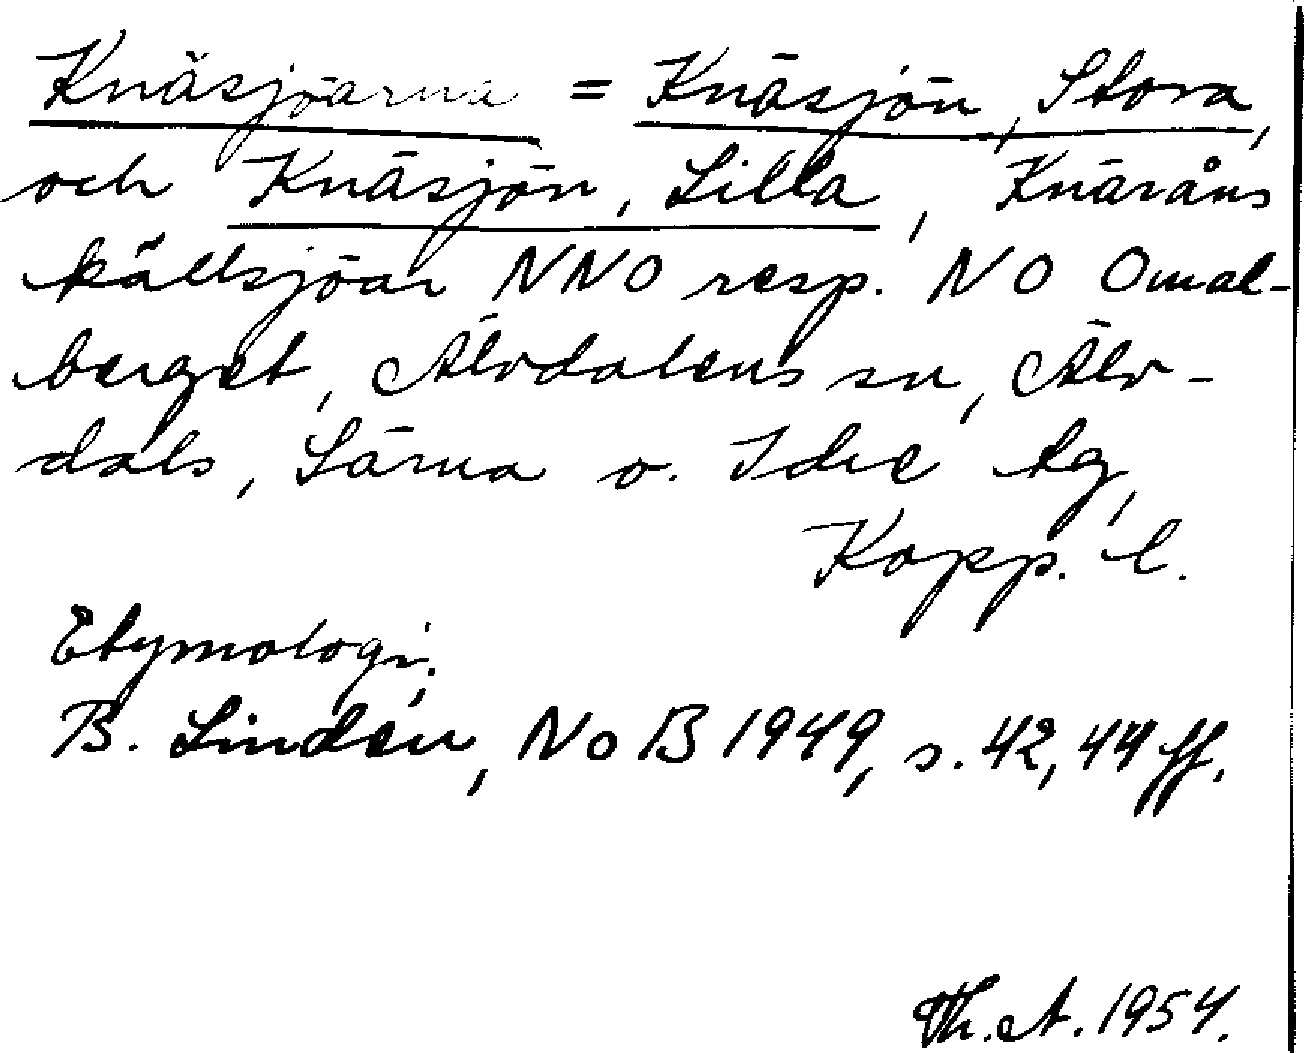 Knäsjöarna = Knäsjön, Stora,
och Knäsjön, Lilla, Knäråns
källsjöar NNO resp. NO Omal-
berget, Älvdalens sn, Älv-
dals, Särna o. Idre tg,
Kopp. l.
Etymologi:
B. Lindén, NoB 1949, s. 42, 44 ff.
Th. A. 1954.